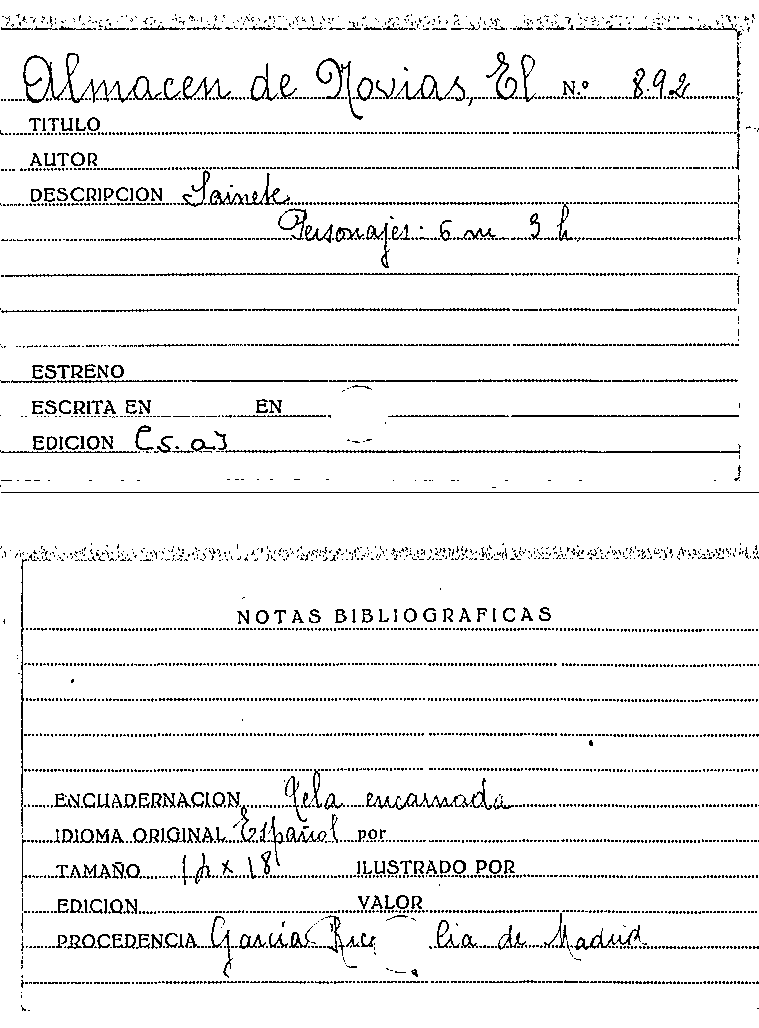 Almacen de Novias, El N.º 892
TITULO
AUTOR
DESCRIPCION Sainete
Personajes: 6 m 3 h
ESTRENO
ESCRITA EN EN
EDICION [s.a]
NOTAS BIBLIOGRAFICAS
ENCUADERNACION Tela encarnada
IDIOMA ORIGINAL Español por
TAMAÑO x 18 ILUSTRADO POR
EDICION VALOR
PROCEDENCIA García Rico Cia de Madrid